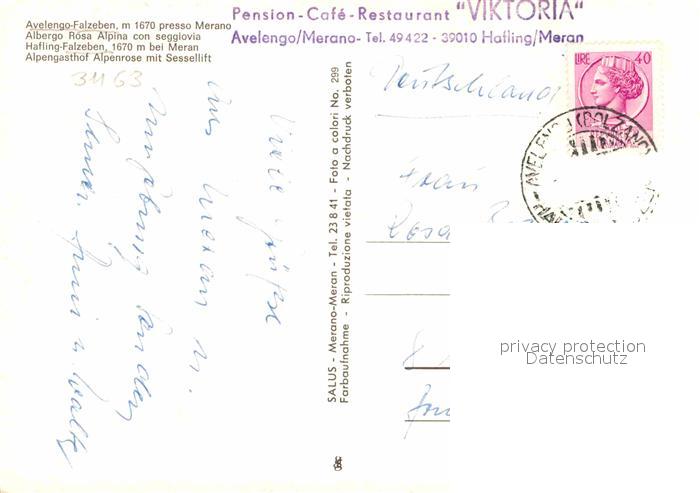 Avelengo-Falzeben, m 1670 presso Merano
Albergo Rosa Alpina con seggiovia
Hafling-Falzeben, 1670 m bei Meran
Alpengasthof Alpenrose mit Sessellift
Pension-Café-Restaurant "VIKTORIA"
Avelengo/Merano- Tel. 49422 - 39010 Hafling/Meran
LIRE 40
AVELENGO (BOLZANO)
3463
Viele Grüße
aus Meran u.
Umgebung senden
SALUS - Merano-Meran - Tel. 23841 - Foto a colori No. 299
Farbaufnahme - Riproduzione vietata - Nachdruck verboten
Deutschland
Frau
Rosa
privacy protection
Datenschutz